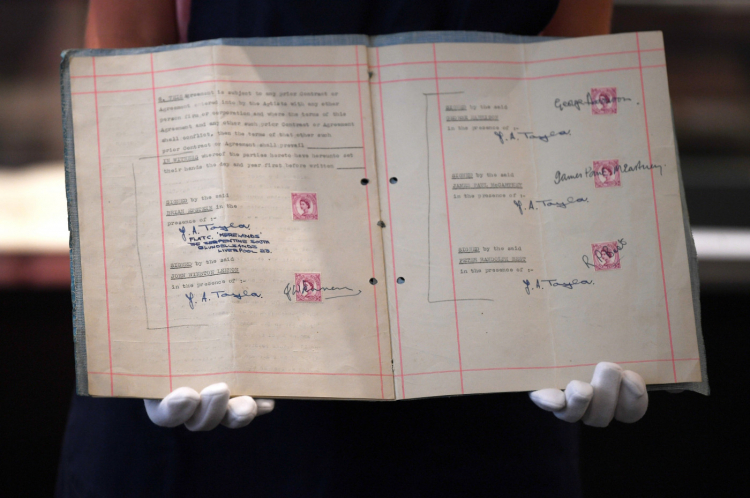 8. THIS Agreement is subject to any prior Contract or
Agreement entered into by the Artists with any other
person firm or corporation and where the terms of this
Agreement and any other such prior Contract or Agreement
shall conflict, then the terms of that other such
prior Contract or Agreement shall prevail
IN WITNESS whereof the parties hereto have hereunto set
their hands the day and year first before written
SIGNED by the said
BRIAN EPSTEIN in the
presence of :-
J. A. Taylor.
LIVERPOOL
SIGNED by the said
JOHN WINSTON LENNON
in the presence of :-
J. A. Taylor.
SIGNED by the said
GEORGE HARRISON
in the presence of :-
George Harrison.
J. A. Taylor.
SIGNED by the said
JAMES PAUL McCARTNEY
in the presence of :-
James Paul McCartney.
J. A. Taylor.
SIGNED by the said
PETER RANDOLPH BEST
in the presence of :-
J. A. Taylor.